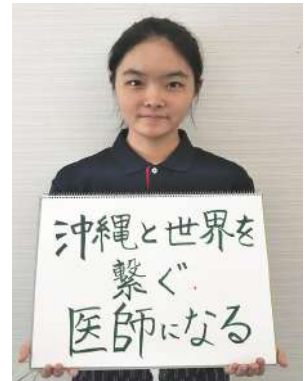 沖縄と世界を
繋ぐ
医師になる